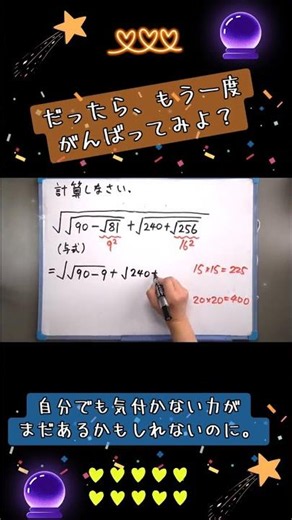 だったら、もう一度
がんばってみよ？
計算しなさい。
√√90-√81 + √240+√256
9² 16²
(与式)
=√√90-9+√240+
15×15=225
20×20=400
自分でも気付かない力が
まだあるかもしれないのに。